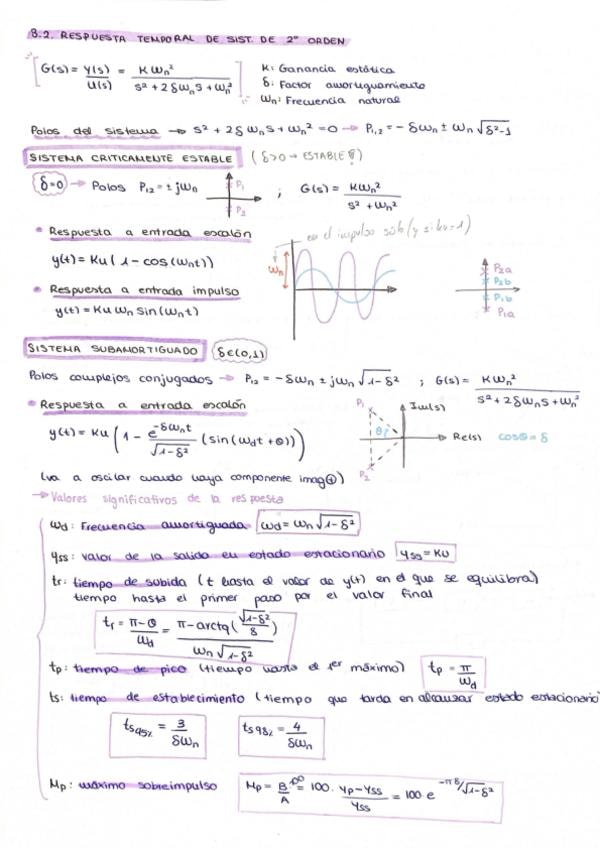 8.2. RESPUESTA TEMPORAL DE SIST. DE 2º ORDEN
G(s) = Y(s)/U(s) = KWn²/(s² + 2δWns + Wn²)
K: Ganancia estática
δ: Factor amortiguamiento
Wn: Frecuencia natural
Polos del sistema → s² + 2δWns + Wn² = 0 → P1,2 = -δWn ± Wn√(δ²-1)
SISTEMA CRITICAMENTE ESTABLE (δ>0 → ESTABLE!)
δ=0 → Polos P1,2 = ± jWn
P1
P2
; G(s) = KWn²/(s² + Wn²)
• Respuesta a entrada escalón
en el impulso sub (y si ku=1)
y(t) = Ku(1 - cos(Wnt))
Wn
P2a
P2b
P1b
P1a
• Respuesta a entrada impulso
y(t) = Ku Wn sin(Wnt)
SISTEMA SUBAMORTIGUADO δ∈(0,1)
Polos complejos conjugados → P1,2 = -δWn ± jWn√(1-δ²) ; G(s) = KWn²/(s² + 2δWns + Wn²)
• Respuesta a entrada escalón
y(t) = Ku(1 - e^(-δWnt)/√(1-δ²) (sin(Wdt + θ)))
P1
Im(s)
θ
Re(s)
cosθ = δ
P2
(va a oscilar cuando haya componente imag⊕)
→ Valores significativos de la respuesta
Wd: Frecuencia amortiguada Wd = Wn√(1-δ²)
yss: valor de la salida en estado estacionario yss = KU
tr: tiempo de subida (t hasta el valor de y(t) en el que se equilibra)
tiempo hasta el primer paso por el valor final
tr = (π-θ)/Wd = (π - arctg(√(1-δ²)/δ))/(Wn√(1-δ²))
tp: tiempo de pico (tiempo hasta el 1er máximo) tp = π/Wd
ts: tiempo de establecimiento (tiempo que tarda en alcanzar estado estacionario)
ts95% = 3/(δWn)
ts98% = 4/(δWn)
Mp: máximo sobreimpulso Mp = B/A·100 = 100· (yp-yss)/yss = 100·e^(-πδ/√(1-δ²))